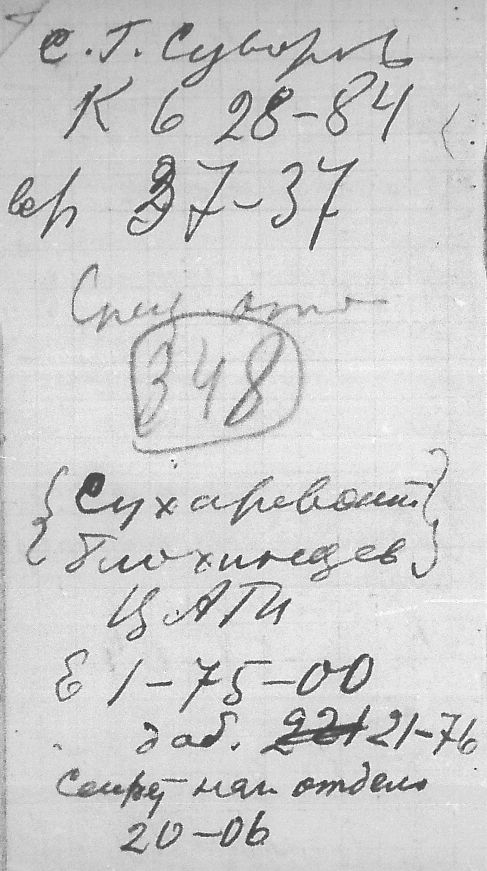 С. Г. Суворов
К 6 28-84
37-37
Спец.
348
Сухаревский
Блохинцев
ЦАГИ
Е 1-75-00
доб. 21-76
отдела
20-06